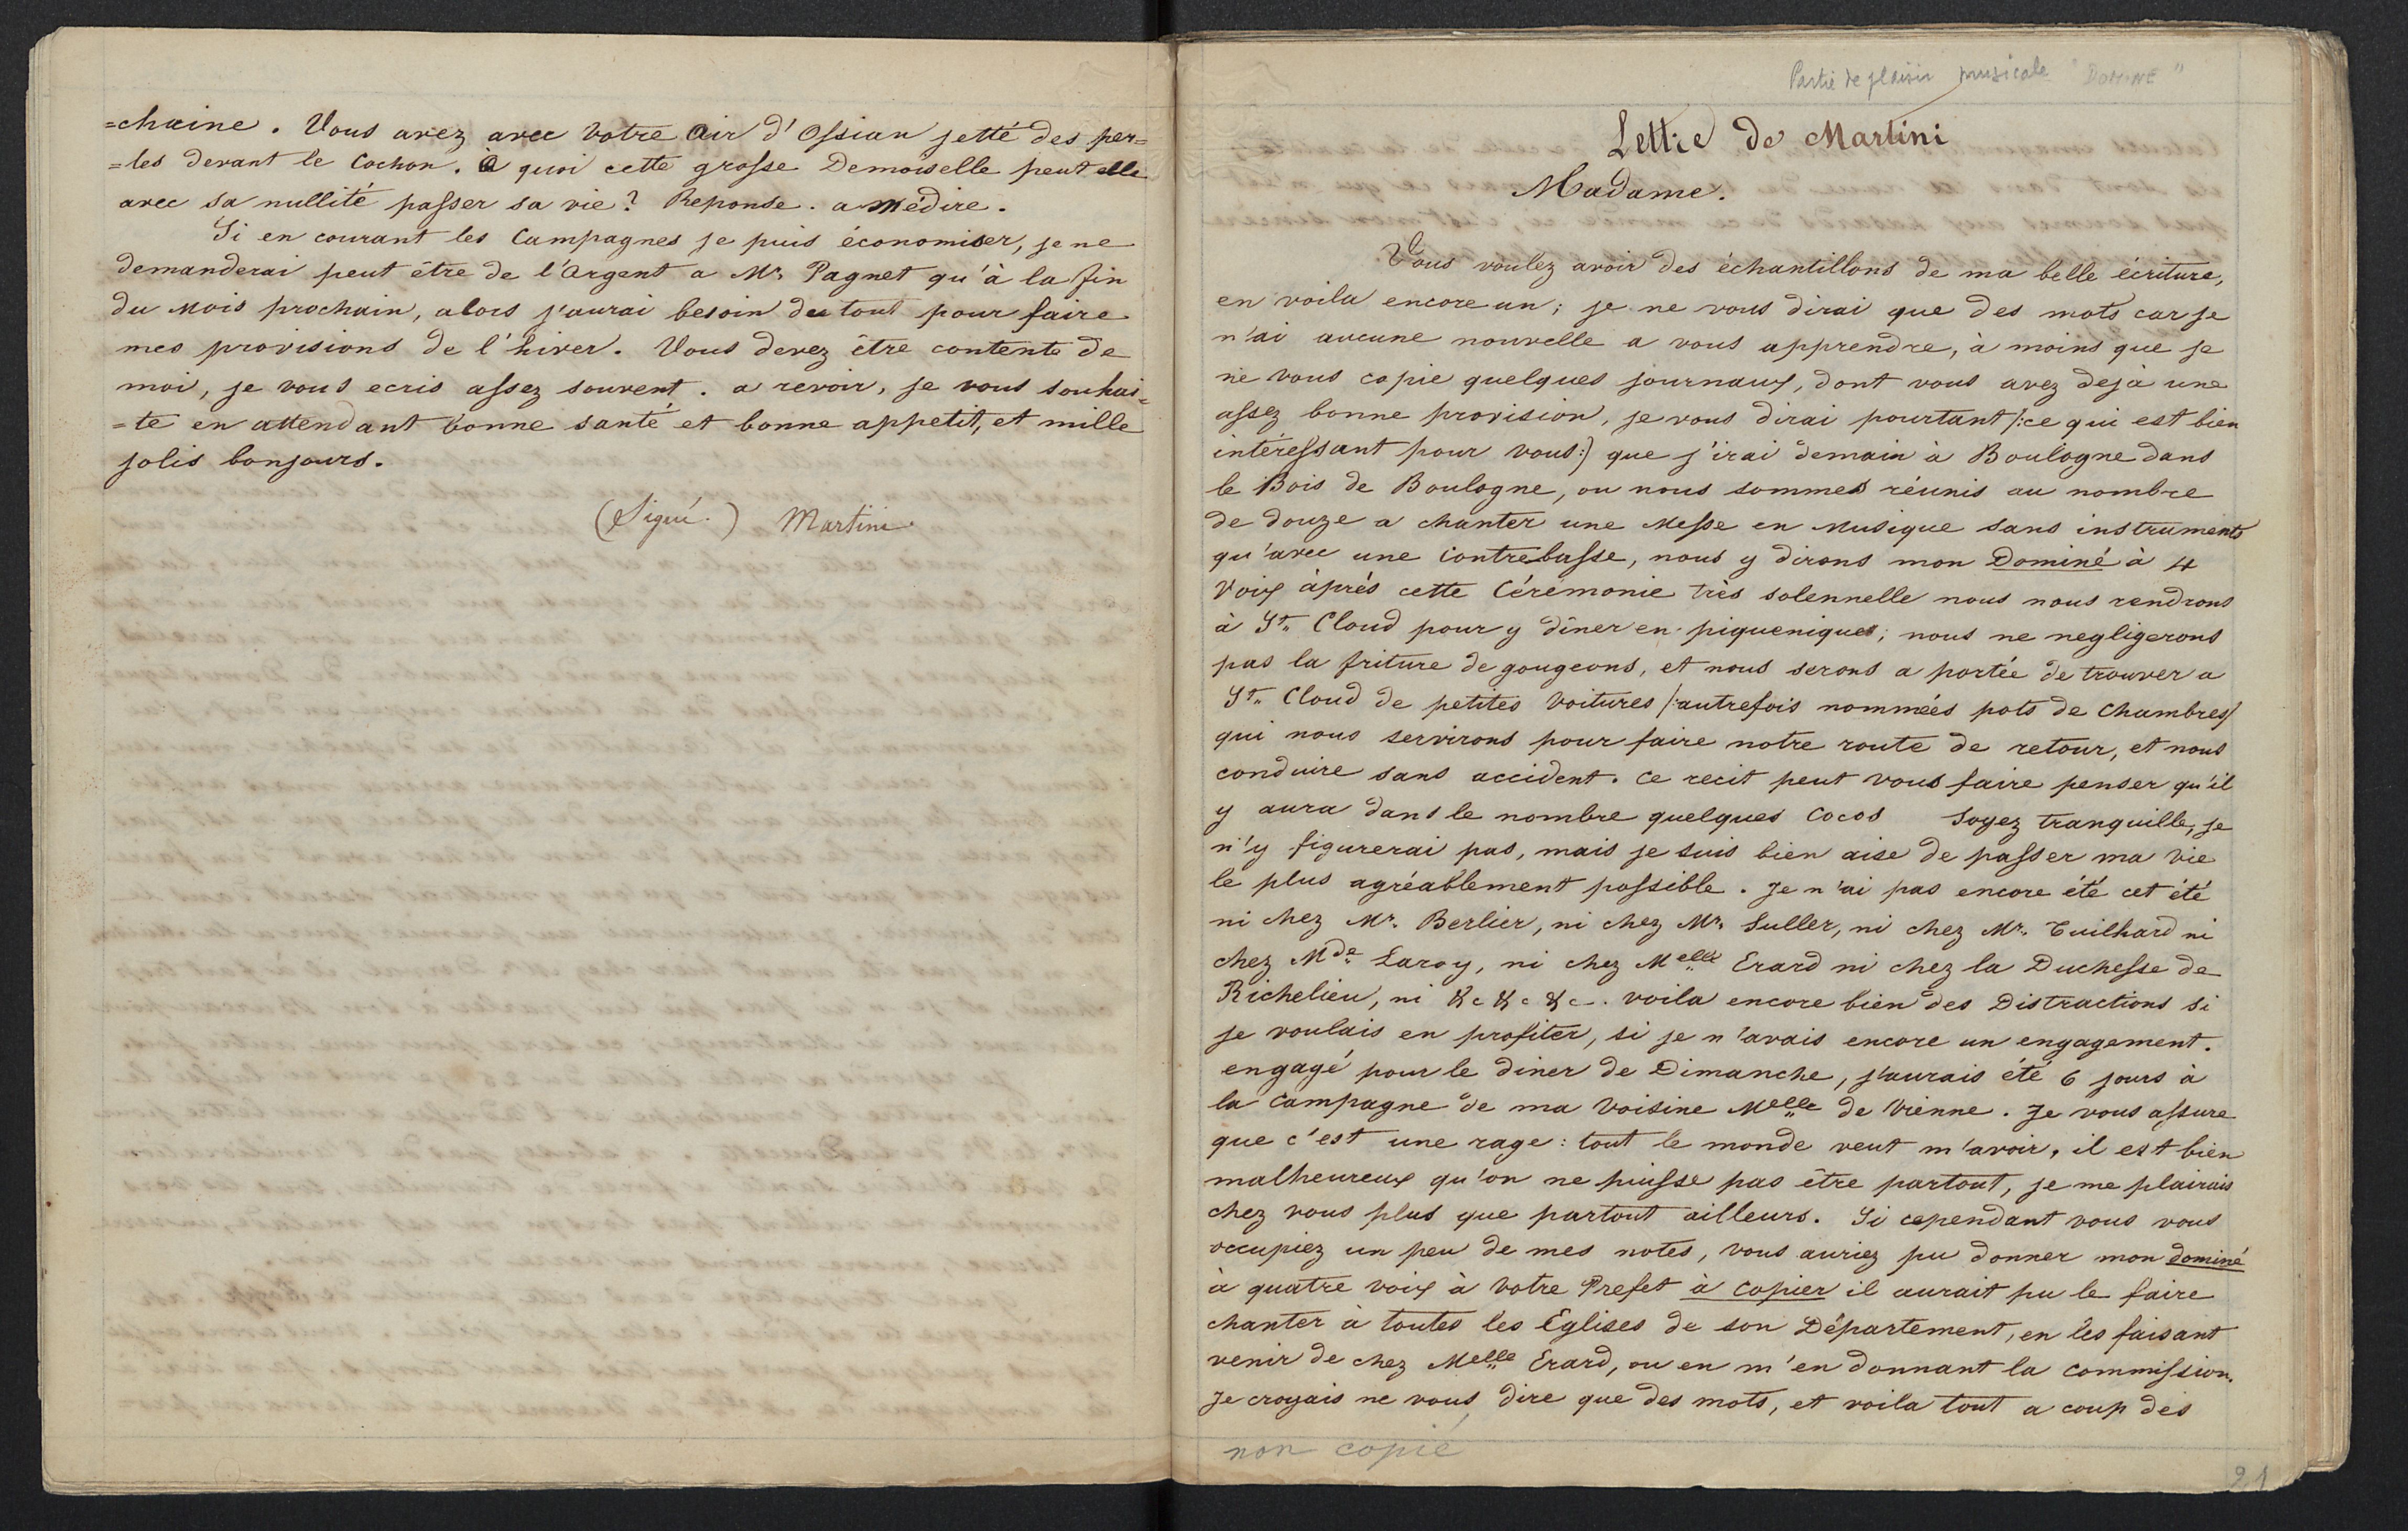 =chaine. Vous avez avec votre air d'Ossian jetté des per=
=les devant le Cochon. à quoi cette grosse Demoiselle peut elle
avec sa nullité passer sa vie? Reponse. a médire.
Si en courant les Campagnes je puis économiser, je ne
demanderai peut être de l'argent a Mr. Pagnet qu'à la fin
du mois prochain, alors j'aurai besoin de tout pour faire
mes provisions de l'hiver. Vous devez être contente de
moi, je vous ecris assez souvent. a revoir, je vous souhai=
=te en attendant bonne santé et bonne appetit, et mille
jolis bonjours.
(Signé.) Martini.
Partie de plaisir musicale "DOMINE"
Lettre de Martini
Madame.
Vous voulez avoir des échantillons de ma belle écriture,
en voila encore un; je ne vous dirai que des mots car je
n'ai aucune nouvelle a vous apprendre, à moins que je
ne vous copie quelques journaux, dont vous avez dejà une
assez bonne provision, je vous dirai pourtant /:ce qui est bien
intéressant pour vous:) que j'irai demain à Boulogne dans
le Bois de Boulogne, ou nous sommes réunis au nombre
de douze a chanter une Messe en Musique sans instruments
qu'avec une contrebasse, nous y dirons mon Dominé à 4
voix après cette Cérémonie très solennelle nous nous rendrons
à St. Cloud pour y dîner en piqueniques; nous ne negligerons
pas la friture de gougeons, et nous serons a portée de trouver a
St. Cloud de petites voitures /:autrefois nommées pots de chambres/
qui nous servirons pour faire notre route de retour, et nous
conduire sans accident. Ce recit peut vous faire penser qu'il
y aura dans le nombre quelques Cocos soyez tranquille, je
n'y figurerai pas, mais je suis bien aise de passer ma vie
le plus agréablement possible. Je n'ai pas encore été cet été
ni chez Mr. Berlier, ni chez Mr. Suller, ni chez Mr. Tuilhard ni
chez Mde. Laroy, ni chez Melle Erard ni chez la Duchesse de
Richelieu, ni &c &c &c. voila encore bien des Distractions si
je voulais en profiter, si je n'avais encore un engagement.
engagé pour le diner de Dimanche, j'aurais été 6 jours à
la Campagne de ma voisine Melle de Vienne. Je vous assure
que c'est une rage: tout le monde veut m'avoir, il est bien
malheureux qu'on ne puisse pas être partout, je me plairais
chez vous plus que partout ailleurs. Si cependant vous vous
occupiez un peu de mes notes, vous auriez pu donner mon dominé
à quatre voix à votre Prefet à copier il aurait pu le faire
chanter à toutes les Eglises de son Département, en les faisant
venir de chez Melle Erard, ou en m'en donnant la commission.
Je croyais ne vous dire que des mots, et voila tout a coup des
non copié
21